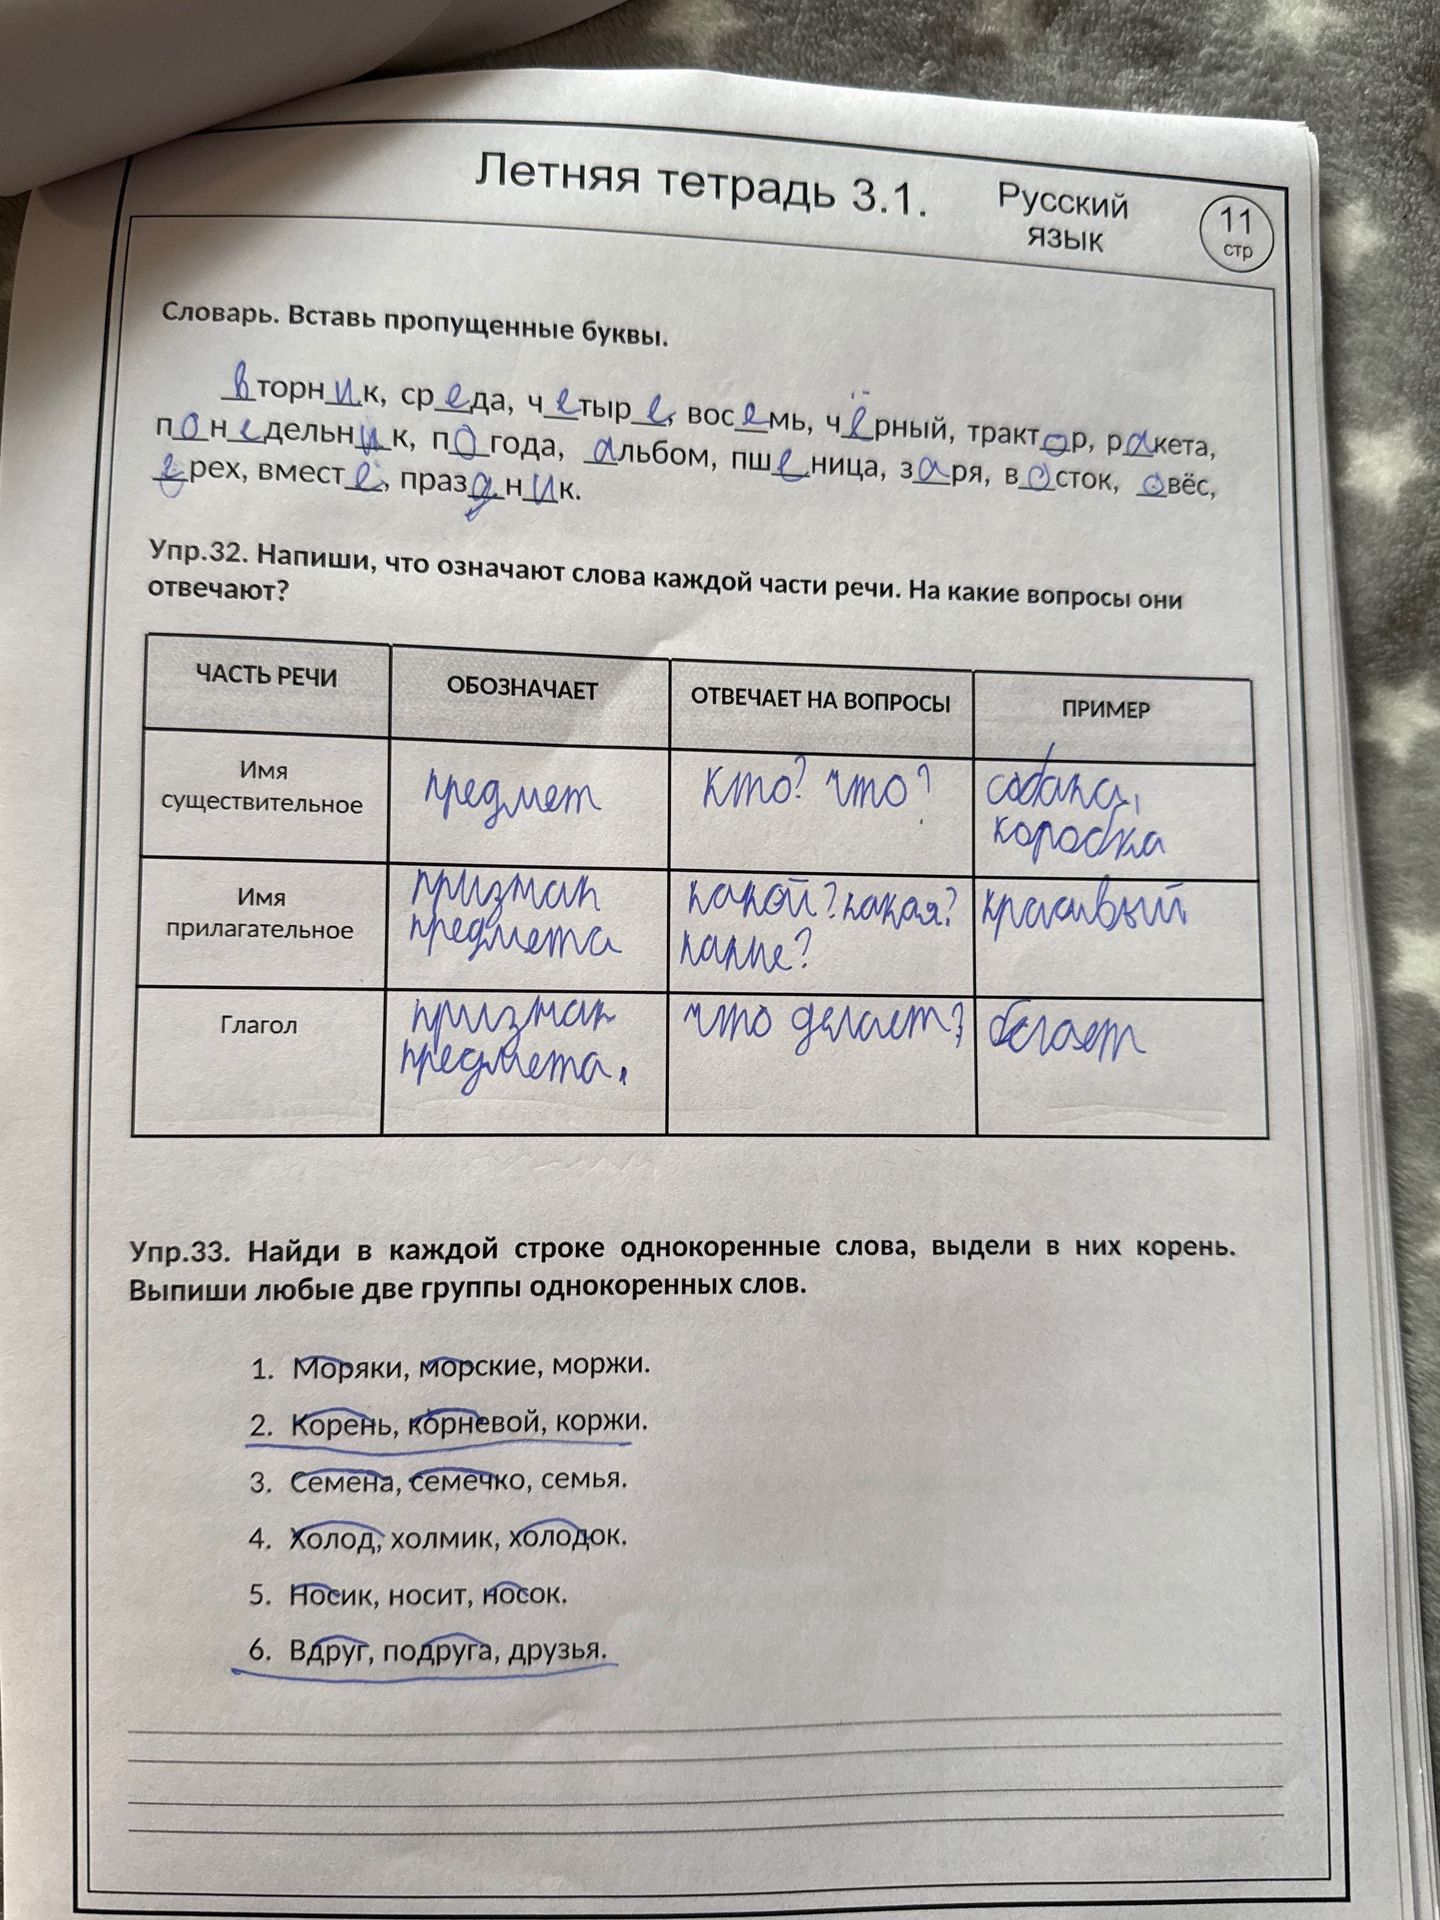 Летняя тетрадь 3.1.
Русский
язык
11
стр
Словарь. Вставь пропущенные буквы.
вторник, среда, четыре, восемь, чёрный, трактор, ракета,
понедельник, погода, альбом, пшеница, заря, восток, овёс,
рех, вместе, праздник.
Упр.32. Напиши, что означают слова каждой части речи. На какие вопросы они
отвечают?
ЧАСТЬ РЕЧИ
ОБОЗНАЧАЕТ
ОТВЕЧАЕТ НА ВОПРОСЫ
ПРИМЕР
Имя
существительное
предмет
кто? что?
собака,
коробка
Имя
прилагательное
признак
предмета
какой? какая?
какие?
красивый
Глагол
признак
предмета.
что делает?
бегает
Упр.33. Найди в каждой строке однокоренные слова, выдели в них корень.
Выпиши любые две группы однокоренных слов.
1. Моряки, морские, моржи.
2. Корень, корневой, коржи.
3. Семена, семечко, семья.
4. Холод, холмик, холодок.
5. Носик, носит, носок.
6. Вдруг, подруга, друзья.